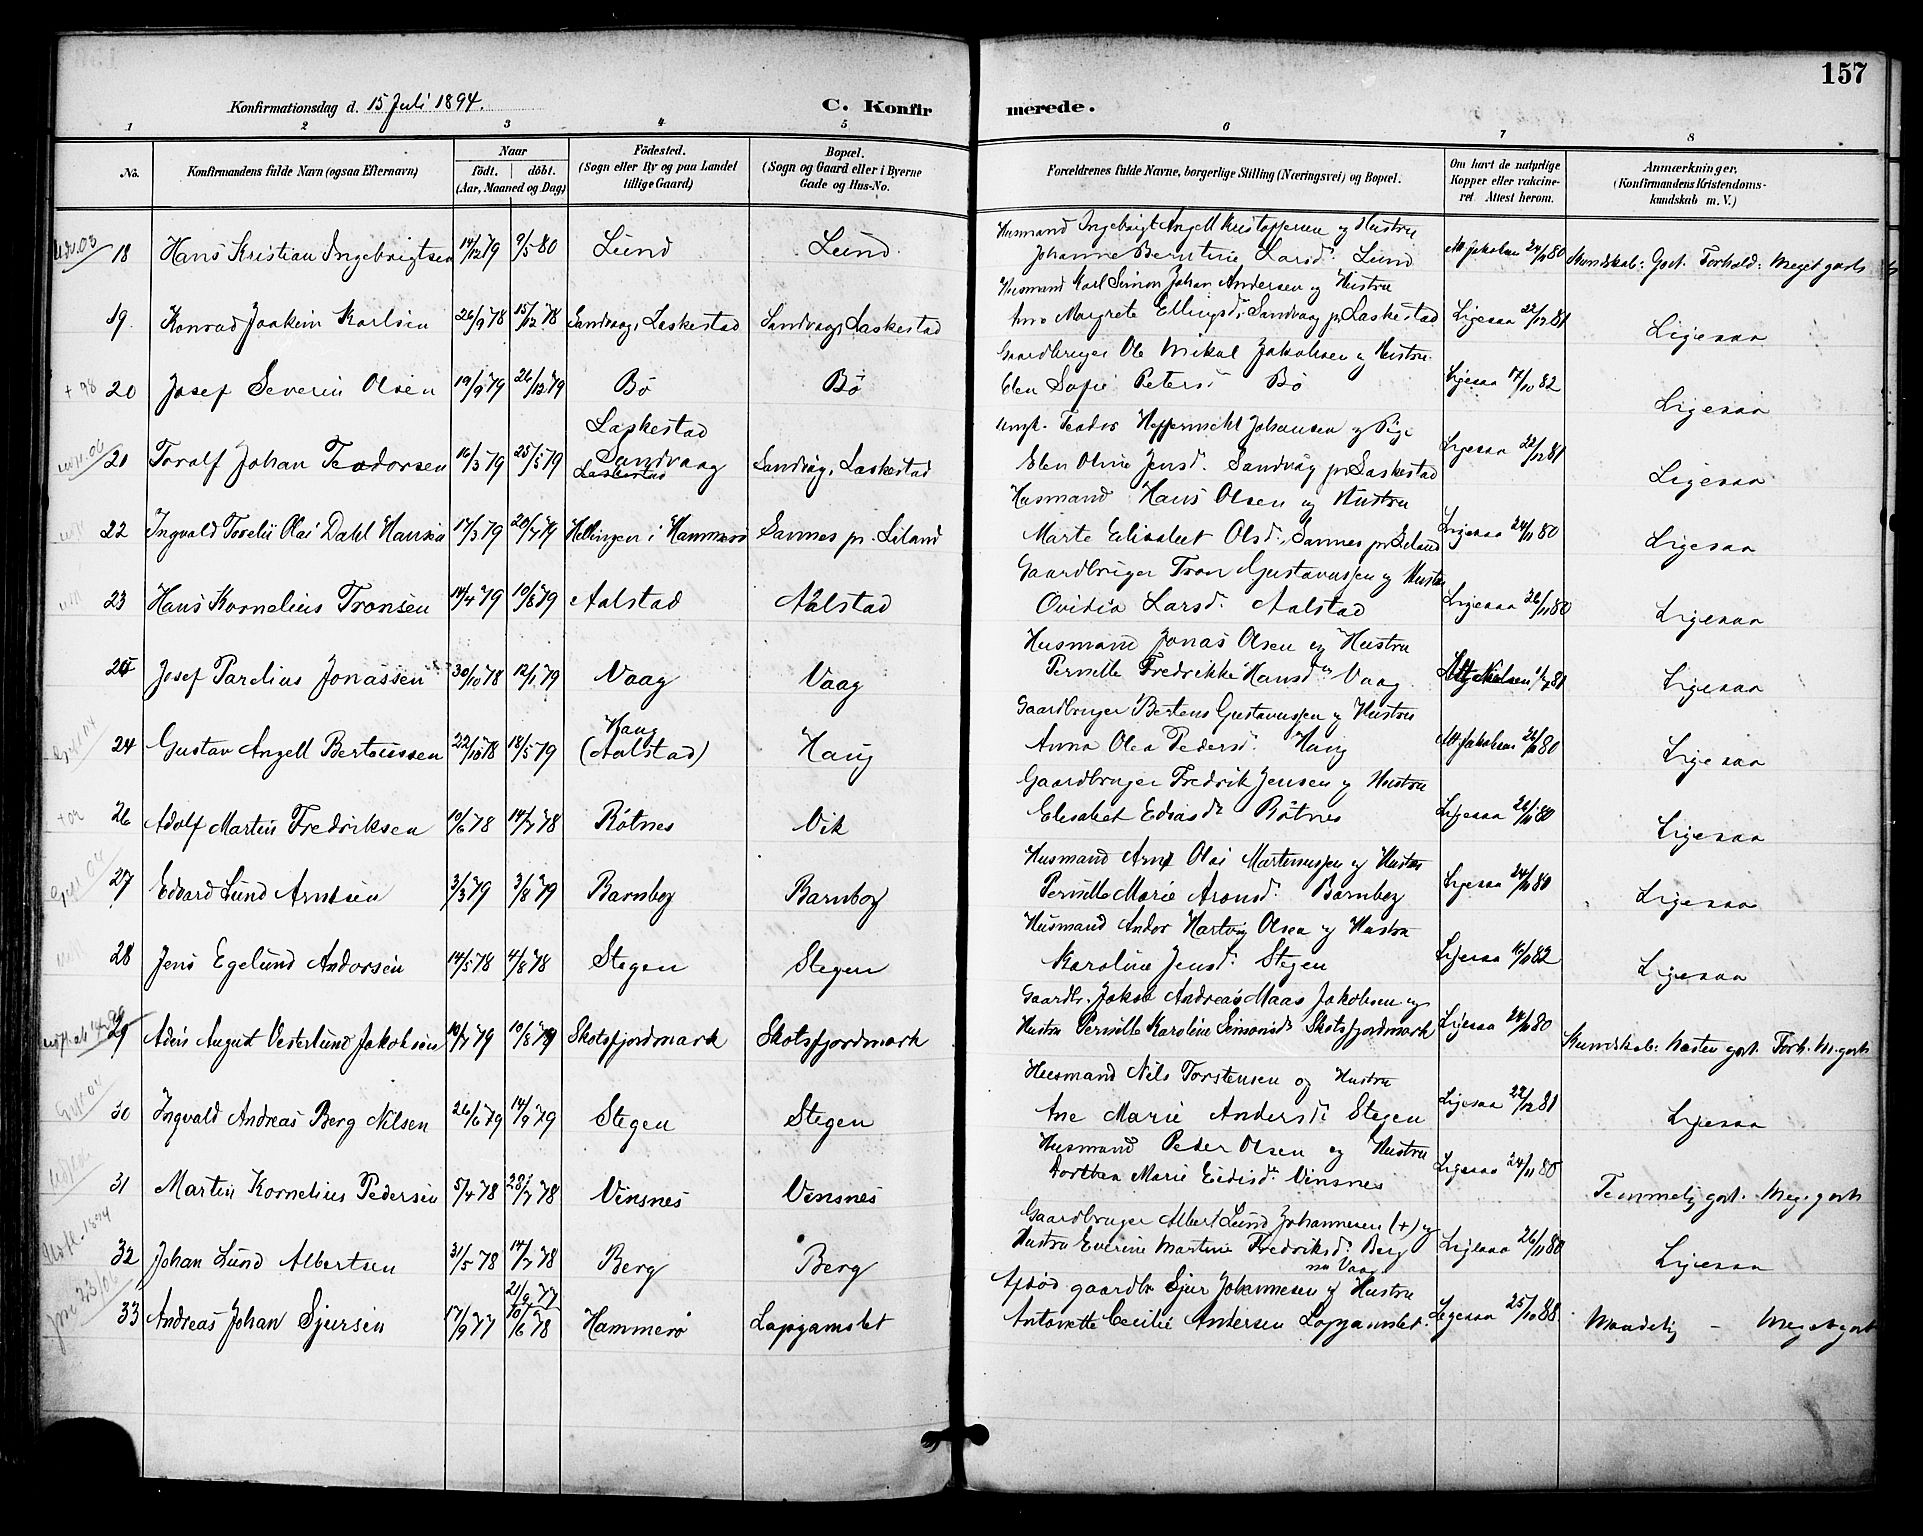 157
Konfirmationsdag d. 15 Juli 1894. C. Konfirmerede.
1 2 3 4 5 6 7 8
No. Konfirmandens fulde Navn (ogsaa Efternavn) Naar födt. döbt. (Aar, Maaned og Dag) Födested. (Sogn eller By og paa Landet tillige Gaard) Bopæl. (Sogn og Gaard eller i Byerne Gade og Hus-No. Forældrenes fulde Navne, borgerlige Stilling (Næringsvei) og Bopæl. Om havt de naturlige Kopper eller vakcineret Attest herom. Anmærkninger. (Konfirmandens Kristendomskundskab m. V.)
Husmand Ingebrigt Angell Kristoffersen og Hustru
18 Hans Kristian Ingebrigtsen 14/12 79 9/5 80 Lund Lund Johanne Berntine Larsd. Lund M Jakobsen 24/11 80 Kundskab: Godt. Forhold: Meget godt
Husmand Karl Simon Johan Andersen og Hustru
19. Konrad Joakim Karlsen 26/9 78 15/12 78 Sandvaag, Laskestad Sandvaag, Laskestad Ane Margrete Ellingsd. Sandvaag pr Laskestad Ligesaa 22/12 81 Ligesaa
Gaardbruger Ole Mikal Jakobsen og Hustru
20 Josef Severin Olsen 19/9 79 26/12 79 Bö Bö Elen Sofie Petersd. Bö Ligesaa 17/10 82 Ligesaa
Laskestad
Ungk. Teodor Johansen og Pige
21 Toralf Johan Teodorsen 16/3 79 25/5 79 Sandvaag Laskestad Sandvåg, Laskestad Elen Oline Jensd. Sandvåg pr Laskestad Ligesaa 22/12 81 Ligesaa
Husmand Hans Olsen og Hustru
22 Ingvald Olai Dahl Hansen 17/3 79 20/7 79 Hellingen i Hammerö Sannes pr. Liland Marte Elisabet Olsd. Sannes pr Leland Ligesaa 24/11 80 Ligesaa
Gaardbruger Tron Gustavussen og Hustru
23 Hans Kornelius Tronsen 14/4 79 10/8 79 Aalstad Aalstad Ovidia Larsd. Aalstad Ligesaa 26/11 80 Ligesaa
Husmand Jonas Olsen og Hustru
25 Josef Parelius Jonassen 30/10 78 12/1 79 Vaag Vaag Pernille Fredrikke Hansd. Vaag Ligesaa
Gaardbruger Berteus Gustavussen og Hustru
24 Gustav Angell Berteussen 22/10 78 18/5 79 Haug (Aalstad) Haug Anna Olea Pedersd. Haug M Jakobsen 26/11 80 Ligesaa
Gaardbruger Fredrik Jensen og Hustru
26 Adolf Martin Fredriksen 10/6 78 14/7 78 Rötnes Vik Elisabet Ediasd. Rötnes Ligesaa 26/11 80 Ligesaa
Husmand Arnt Olai Martinussen og Hustru
27 Edvard Lund Arntsen 3/3 79 3/8 79 Barnboy Barnboy Pernille Marie Aronsd. Barnboy Ligesaa 24/11 80 Ligesaa
Husmand Andor Hartvig Olsen og Hustru
28 Jens Egelund Andorsen 14/5 78 4/8 78 Stegen Stegen Karoline Jensd. Stegen Ligesaa 16/11 82 Ligesaa
Gaardbr. Jakob Andreas Maas Jakobsen og
29 August Vesterlund Jakobsen 10/7 79 10/8 79 Skotsfjordmark Skotsfjordmark Hustru Pernille Karoline Simonsd. Skotsfjordmark Ligesaa 24/11 80 Kundskab: Næsten godt. Forh. M. godt
Husmand Nils Torstensen og Hustru
30 Ingvald Andreas Berg Nilsen 26/6 79 14/9 79 Stegen Stegen Ane Marie Andersd. Stegen Ligesaa 22/12 81 Ligesaa
Husmand Peder Olsen og Hustru
31 Martin Kornelius Pedersen 5/4 78 28/7 78 Vinsnes Vinsnes Dorthea Marie Eidisd. Vinsnes Ligesaa 24/11 80 Temmelig godt. Meg. godt
Gaardbruger Albert Lund Johannesen (+) og
32 Johan Lund Albertsen 31/5 78 14/7 78 Berg Berg Hustru Everine Martine Fredriksd. Berg nu Vaag Ligesaa 26/11 80 Ligesaa
Afdöd gaardbr. Sjur Johannesen og Hustru
33 Andreas Johan Sjursen 17/9 77 21/9 77 10/6 78 Hammerö Lapgamslet Antonette Cecilie Andersen Lapgamslet. Ligesaa 25/10 88. Maadelig – Meget godt